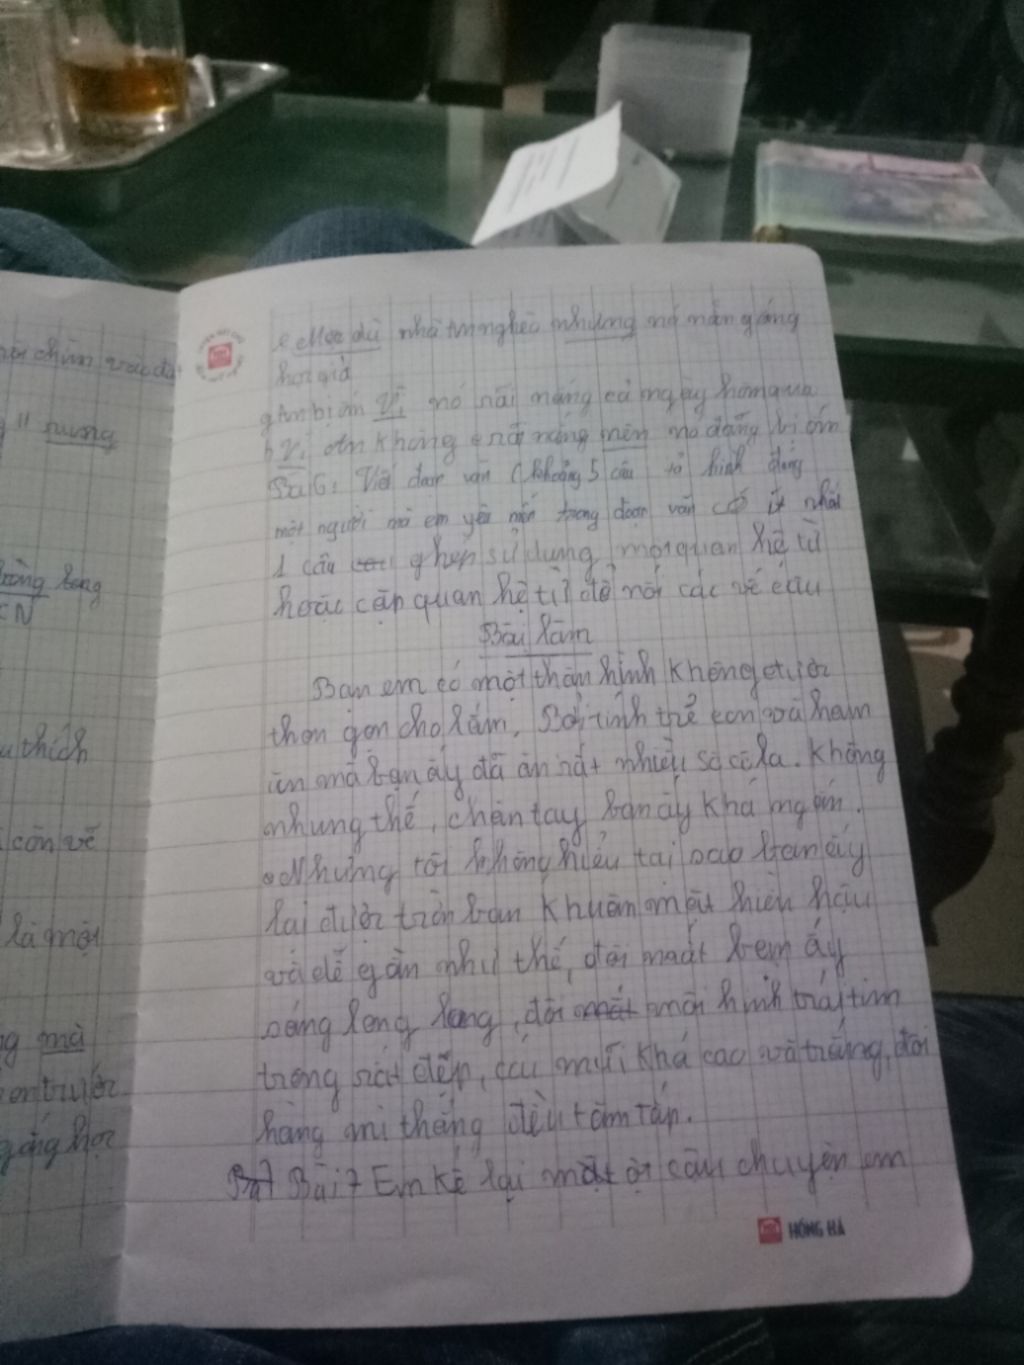 c Mặc dù nhà tôi nghèo nhưng nó vẫn gắng
học giỏi
g Em bị ốm Vì nó dãi nắng cả ngày hôm qua
h Vì ăn không e nên nó đang bị ốm
Bài 6: Viết đoạn văn (khoảng 5 câu tả hình dáng
một người mà em yêu mến trong đoạn văn có ít nhất
1 câu ghép sử dụng một quan hệ từ
hoặc cặp quan hệ từ để nối các vế câu
Bài làm
Bạn em có một thân hình không được
thon gọn cho lắm, Bởi tính trẻ con và ham
ăn mà bạn ấy đã ăn rất nhiều sô cô la. Không
nhưng thế, chân tay bạn ấy khá ngắn.
Nhưng tôi không hiểu tại sao bạn ấy
lại được trời ban khuôn mặt hiền hậu
và dễ gần như thế, đôi mắt bạn ấy
sáng long lang, đôi mắt môi hình trái tim
trông rất đẹp, cái mũi khá cao và trắng, đôi
hàng mi thẳng đều tăm tắp.
Bài 7 Em kể lại một câu chuyện em
HỒNG HÀ
rưng
CN
u thích
còn về
là một
g mà
gắng học